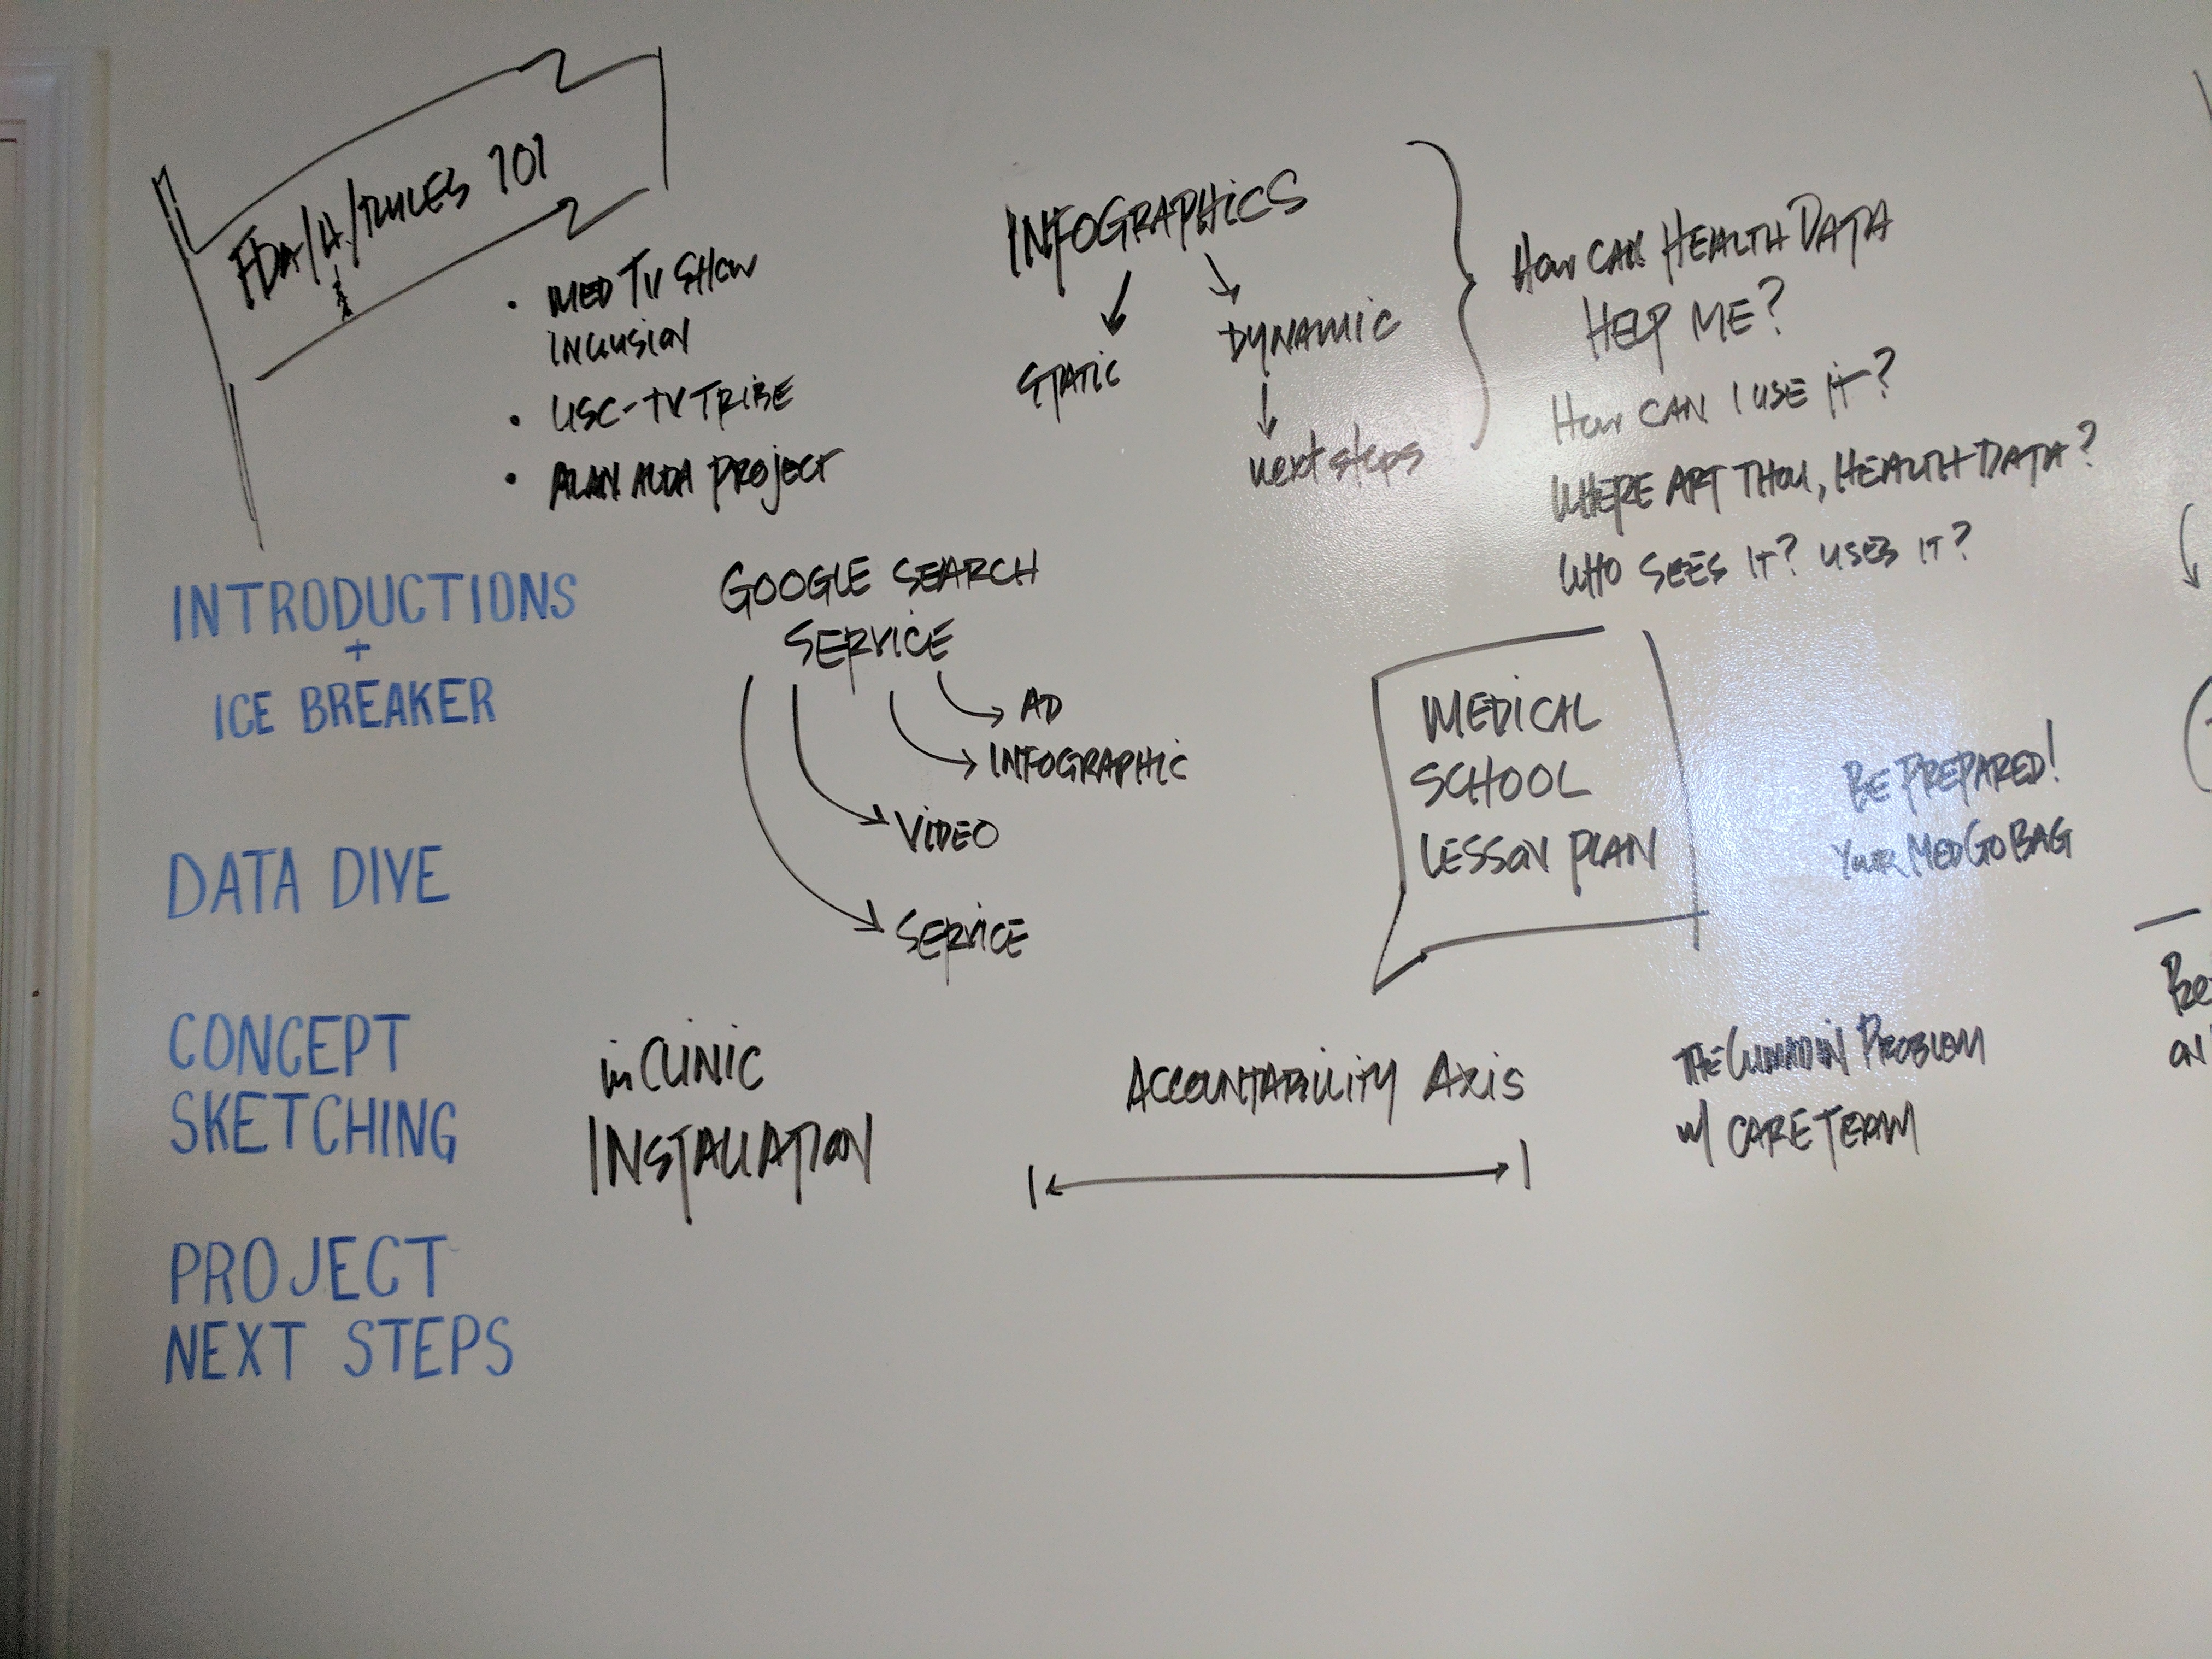 FDA/4/RULES 101
• MED TV SHOW
INCLUSION
• USC-TV TRIBE
• ALAN ALDA PROJECT
INFOGRAPHICS
STATIC
DYNAMIC
next steps
How CAN HEALTH DATA
HELP ME?
How CAN I USE it?
WHERE ART THOU, HEALTH DATA?
WHO SEES IT? USES IT?
INTRODUCTIONS
+
ICE BREAKER
DATA DIVE
CONCEPT
SKETCHING
PROJECT
NEXT STEPS
GOOGLE SEARCH
SERVICE
AD
INFOGRAPHIC
VIDEO
SERVICE
MEDICAL
SCHOOL
LESSON PLAN
BE PREPARED!
YOUR MED GO BAG
in CLINIC
INSTALLATION
ACCOUNTABILITY AXIS
THE PROBLEM
w/ CARE TEAM